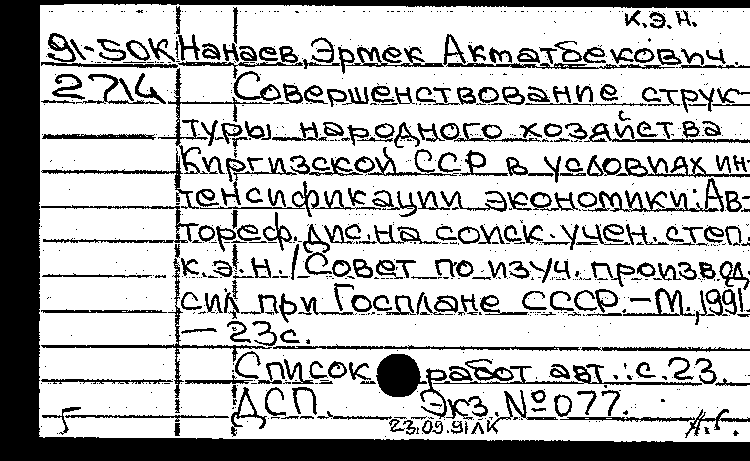 К.Э.Н.
91-50К Нанаев, Эрмек Акматбекович.
2714 Совершенствование струк-
туры народного хозяйства
Киргизской ССР в условиях ин-
тенсификации экономики: Ав-
тореф. дис. на соиск. учен. степ.
к.э.н. / Совет по изуч. производ.
сил при Госплане СССР. – М., 1991.
– 23 с.
Список работ авт.: с. 23.
ДСП. Экз. № 077.
23.09.91 ЛК